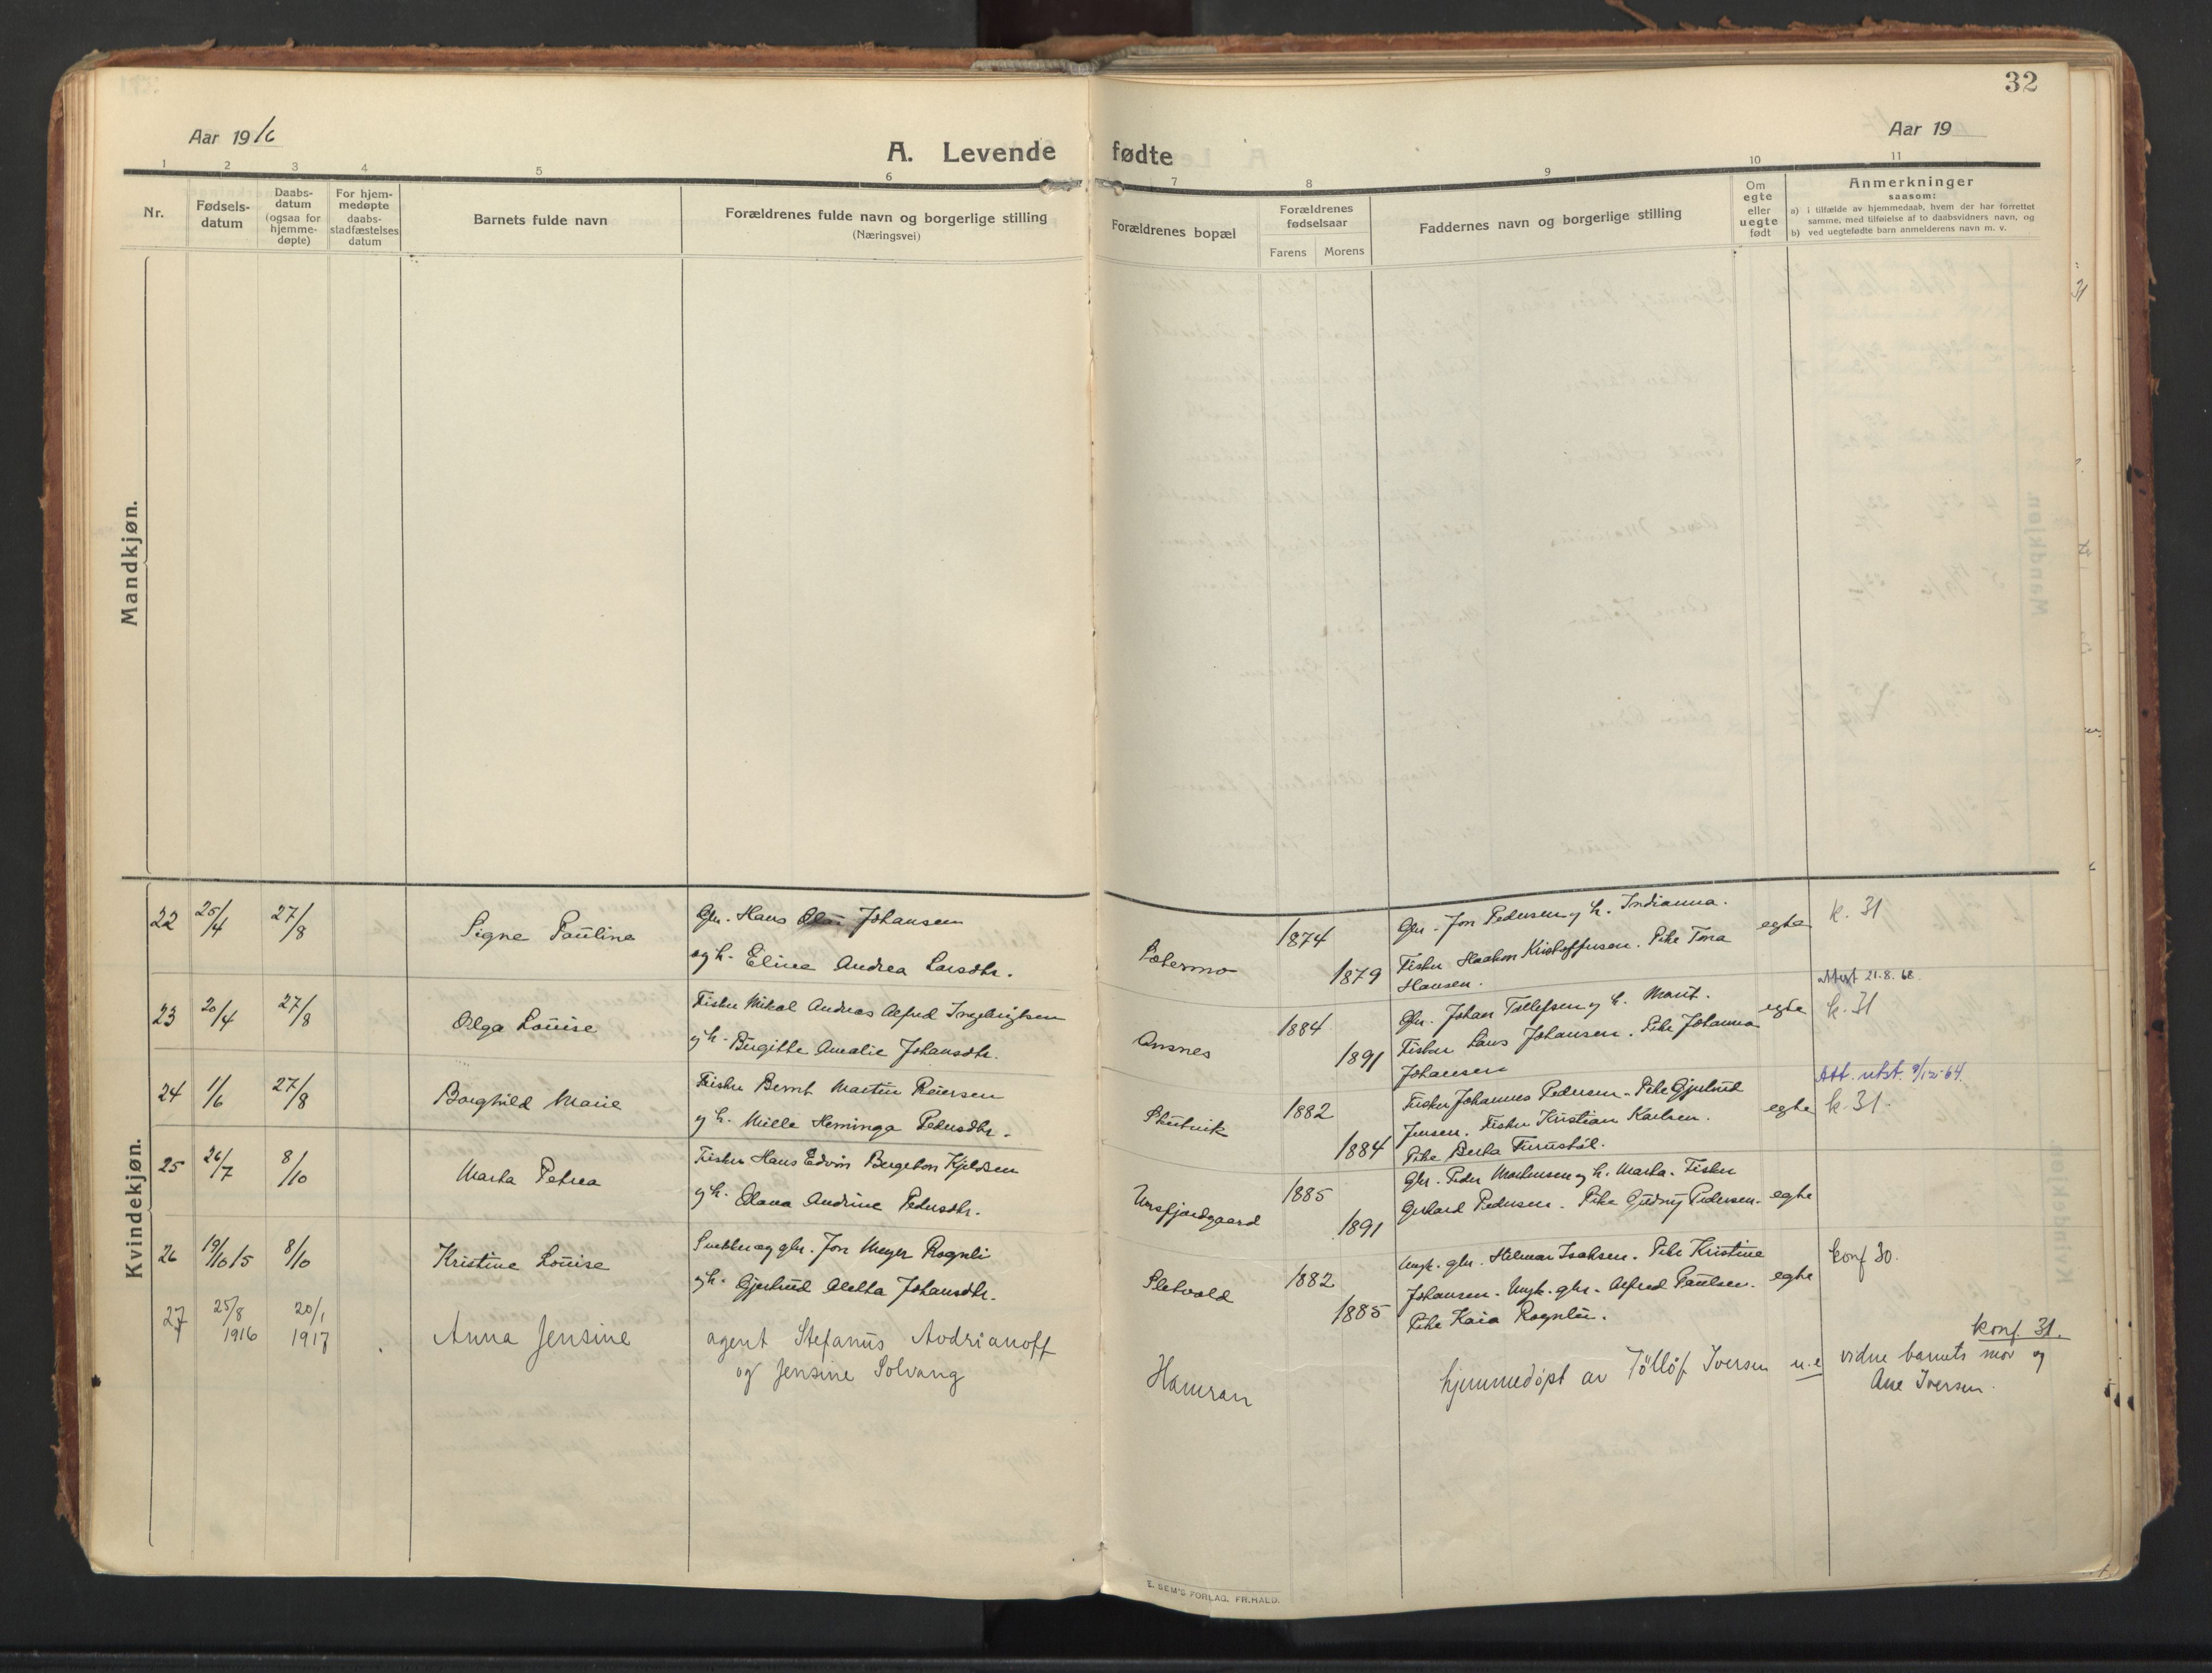 32
Aar 1916
Aar 19
A. Levende fødte
1 2 3 4 5 6 7 8 9 10 11
Nr.
Fødsels-
datum
Daabs-
datum
(ogsaa for
hjemme-
døpte)
For hjem-
medøpte
daabs-
stadfæstelses
datum
Barnets fulde navn
Forældrenes fulde navn og borgerlige stilling
(Næringsvei)
Forældrenes bopæl
Forældrenes
fødselsaar
Farens Morens
Faddernes navn og borgerlige stilling
Om
egte
eller
uegte
født
Anmerkninger
saasom:
a) i tilfælde av hjemmedaab, hvem der har forrettet
samme, med tilføielse af to daabsvidners navn, og
b) ved uegtefødte barn anmelderens navn m. v.
Mandkjøn.
Kvindekjøn.
22 25/4 27/8 Signe Pauline
Gbr. Hans Johansen
og h. Eline Andrea Larsdtr.
1874
1879
Gbr. Jon Pedersen og h. Indianna.
Fisker Haakon Kristoffersen. Pike Tora
Hansen.
egte
k. 31
23 20/4 27/8 Olga Louise
Fisker Mikal Andreas Alfred Ingebrigtsen
og h. Birgitte Amalie Johansdtr.
Ansnes
1884
1891
Gbr. Johan Tollefsen og h. Marit.
Fisker Lars Johansen. Pike Johanna
Johansen
egte
Attest 21.8.68.
k. 31
24 1/6 27/8 Borghild Marie
Fisker Bernt Martin Reiersen
og h. Mille Heminga Pedersdtr.
1882
1884
Fisker Johannes Pedersen. Pike Gjertrud
Jensen. Fisker Kristian Karlsen.
Pike Berta
egte
Att. utst. 9/12-64.
k. 31.
25 26/7 8/10 Marta Petrea
Fisker Hans Edvin Bergeton Kjeldsen
og h. Olava Andrine Pedersdtr.
1885
1891
Gbr. Peder Mortensen og h. Marta. Fisker
Gerhard Pedersen. Pike Gudny Pedersen.
egte
26 19/10 15 8/10 Kristine Louise
Snekker og gbr. Jon Meyer Rognli
og h. Gjertrud Aletta Johansdtr.
Sletvold
1882
1885
Ungk. gbr. Hilmar Isaksen. Pike Kristine
Johansen. Ungk. gbr. Alfred Paulsen.
Pike Kaia Rognli.
egte
konf 30.
27 25/8 1916 20/1 1917 Anna Jensine
agent Stefanus Andrianoff
og Jensine Solvang
Hamran
hjemmedøpt av Tølløf Iversen
u.e
konf 31.
vidne barnets mor og
Ane Iversen.
E. SEM'S FORLAG, FR.HALD.